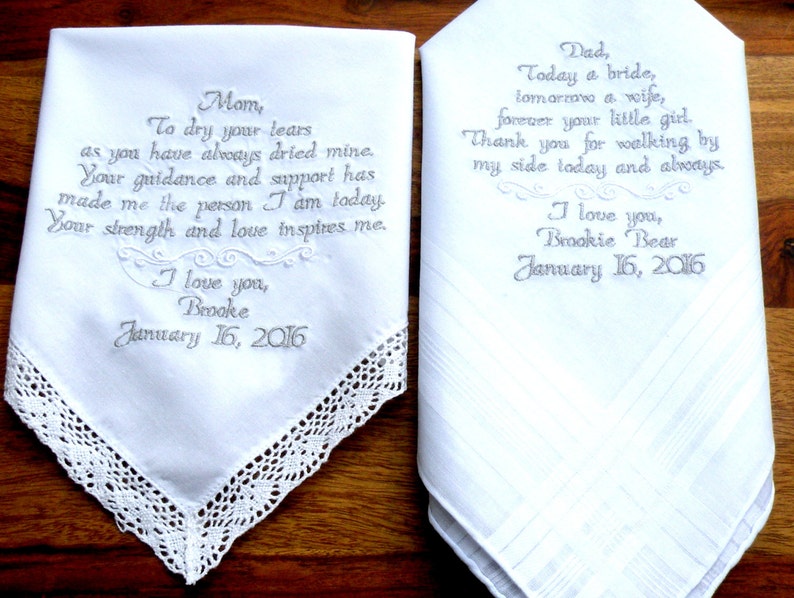 Mom,
To dry your tears
as you have always dried mine.
Your guidance and support has
made me the person I am today.
Your strength and love inspires me.
I love you,
Brooke
January 16, 2016
Dad,
Today a bride,
tomorrow a wife,
forever your little girl.
Thank you for walking by
my side today and always.
I love you,
Brookie Bear
January 16, 2016